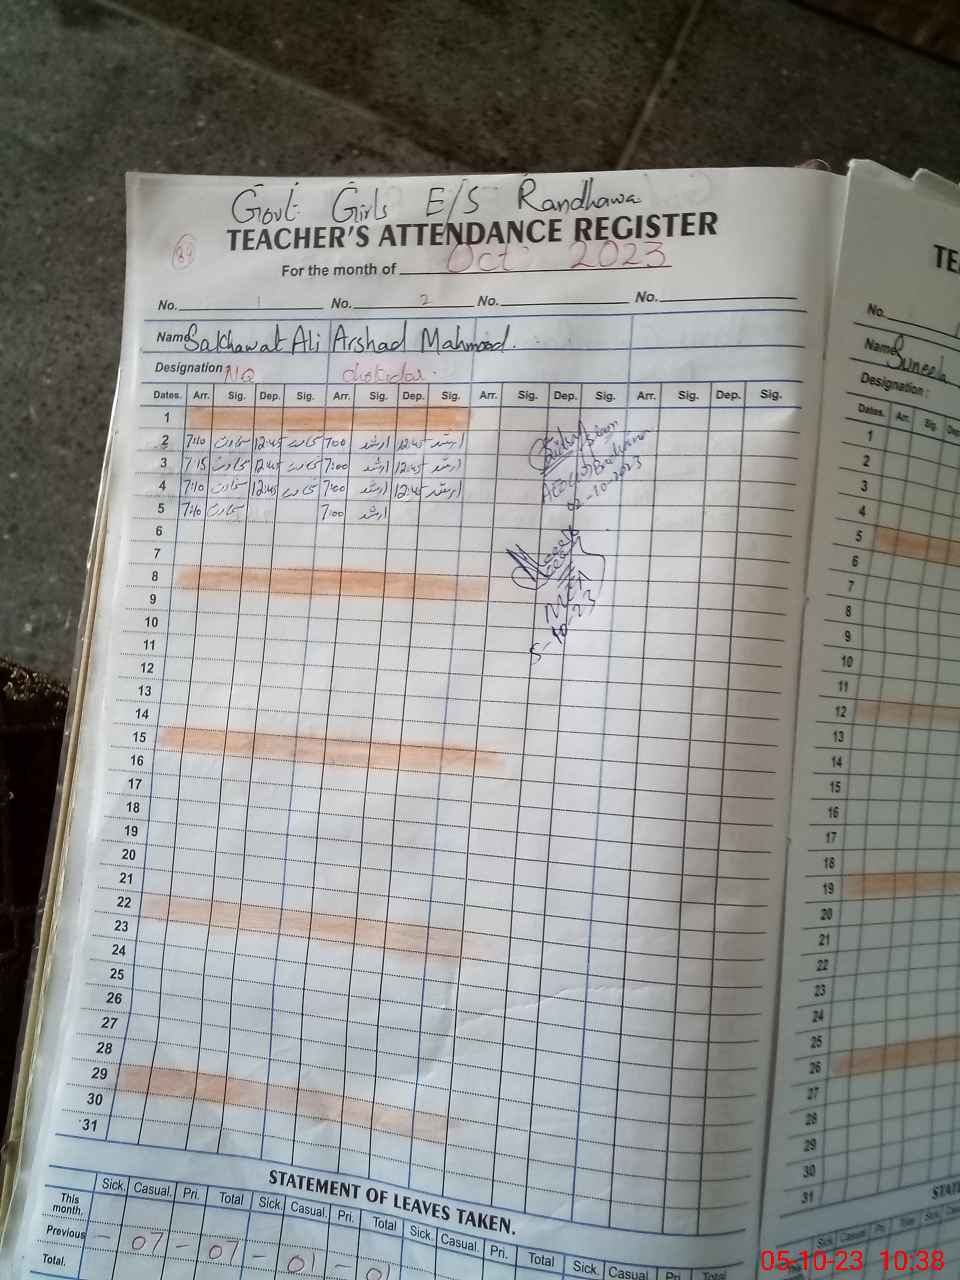 Govt. Girls E/S Randhawa
TEACHER'S ATTENDANCE REGISTER
89
For the month of Oct. 2023
No. 1 No. 2 No. No.
Name Sakhawat Ali Arshad Mahmood.
Designation: NQ chokidar.
Dates. Arr. Sig. Dep. Sig. Arr. Sig. Dep. Sig. Arr. Sig. Dep. Sig. Arr. Sig. Dep. Sig.
1
2 7:10 سخاوت 12:45 سخاوت 7:00 ارشد 12:45 ارشد
3 7:15 سخاوت 12:45 سخاوت 7:00 ارشد 12:45 ارشد
4 7:10 سخاوت 12:45 سخاوت 7:00 ارشد 12:45 ارشد
5 7:10 سخاوت 7:00 ارشد
6
7
8
9
10
11
12
13
14
15
16
17
18
19
20
21
22
23
24
25
26
27
28
29
30
31
02-10-2023
MEA
5-10-23
STATEMENT OF LEAVES TAKEN.
Sick. Casual. Pri. Total Sick. Casual. Pri. Total Sick. Casual. Pri. Total Sick. Casual. Pri. Total
This month.
Previous - 07 - 07 - 01 - 01
Total.
TE
No.
Name Suneela
Designation:
Dates. Arr. Sig. Dep.
1
2
3
4
5
6
7
8
9
10
11
12
13
14
15
16
17
18
19
20
21
22
23
24
25
26
27
28
29
30
31
Sick Casual Pri. Total Sick
05-10-23 10:38